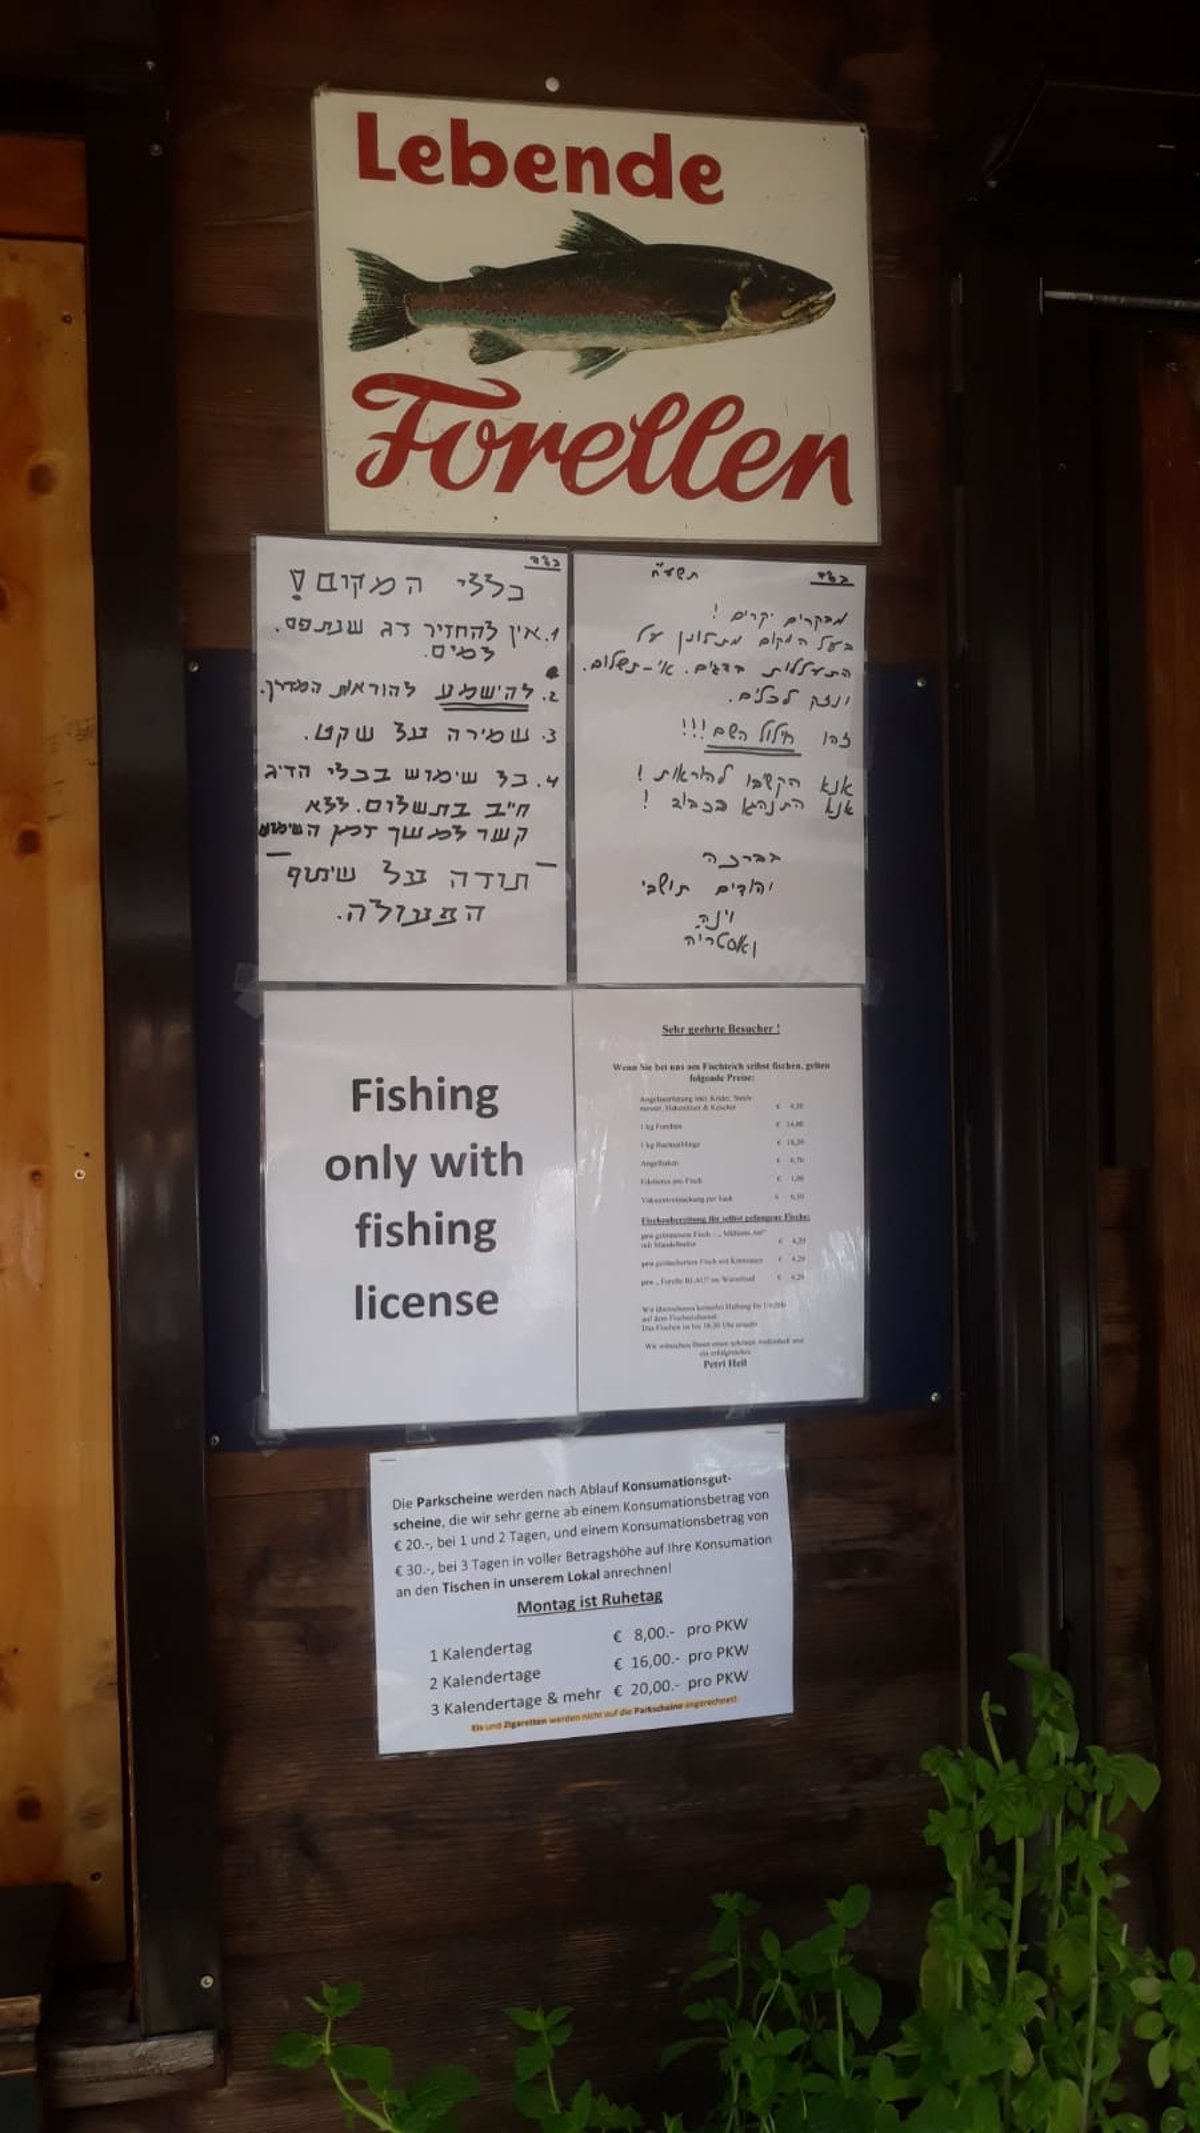 Lebende
Forellen
בעז״ה
כללי המקום!
1. אין להחזיר דג שנתפס.
למים.
2. להישמע להוראות המדריך.
3. שמירה על שקט.
4. כל שימוש בכלי הדיג
חייב בתשלום. ללא
קשר למשך זמן השימוש
תודה על שיתוף
הפעולה.
תשע״ח
מבקרים יקרים!
בעל המקום מתלונן על
התעללות בדגים. אי-תשלום.
ונזק לכלים.
זהו חילול השם!!!
אנא הקשבו להוראות!
אנא התנהגו בכבוד!
בברכה
יהודים תושבי
וינה
ואוסטריה
Fishing
only with
fishing
license
Sehr geehrte Besucher !
Wenn Sie bei uns am Fischteich selbst fischen, gelten
folgende Preise:
1 kg Forellen € 14,80
1 kg Bachsaiblinge
Filetieren pro Fisch € 1,00
Fischzubereitung für selbst gefangene Fische:
Petri Heil
Die Parkscheine werden nach Ablauf Konsumationsgut-
scheine, die wir sehr gerne ab einem Konsumationsbetrag von
€ 20.-, bei 1 und 2 Tagen, und einem Konsumationsbetrag von
€ 30.-, bei 3 Tagen in voller Betragshöhe auf Ihre Konsumation
an den Tischen in unserem Lokal anrechnen!
Montag ist Ruhetag
1 Kalendertag € 8,00.- pro PKW
2 Kalendertage € 16,00.- pro PKW
3 Kalendertage & mehr € 20,00.- pro PKW
Eis und Zigaretten werden nicht auf die Parkscheine angerechnet!